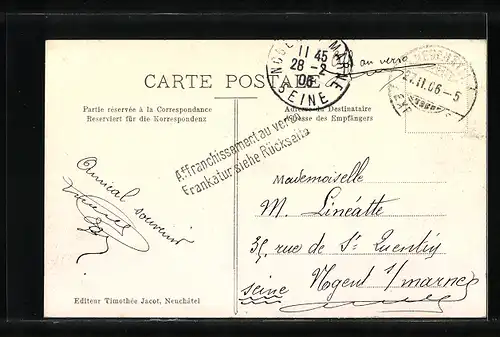 NOGENT S MARNE
11 45
28 - 2
06
SEINE
au verso
27.II.06-5
CARTE POSTALE
Partie réservée à la Correspondance
Reserviert für die Korrespondenz
Adresse du Destinataire
Adresse des Empfängers
Affranchissement au verso
Frankatur siehe Rückseite
Amical souvenir
Mademoiselle
M. Linéatte
35, rue de St Quentin
Nogent s/marne
seine
Editeur Timothée Jacot, Neuchâtel